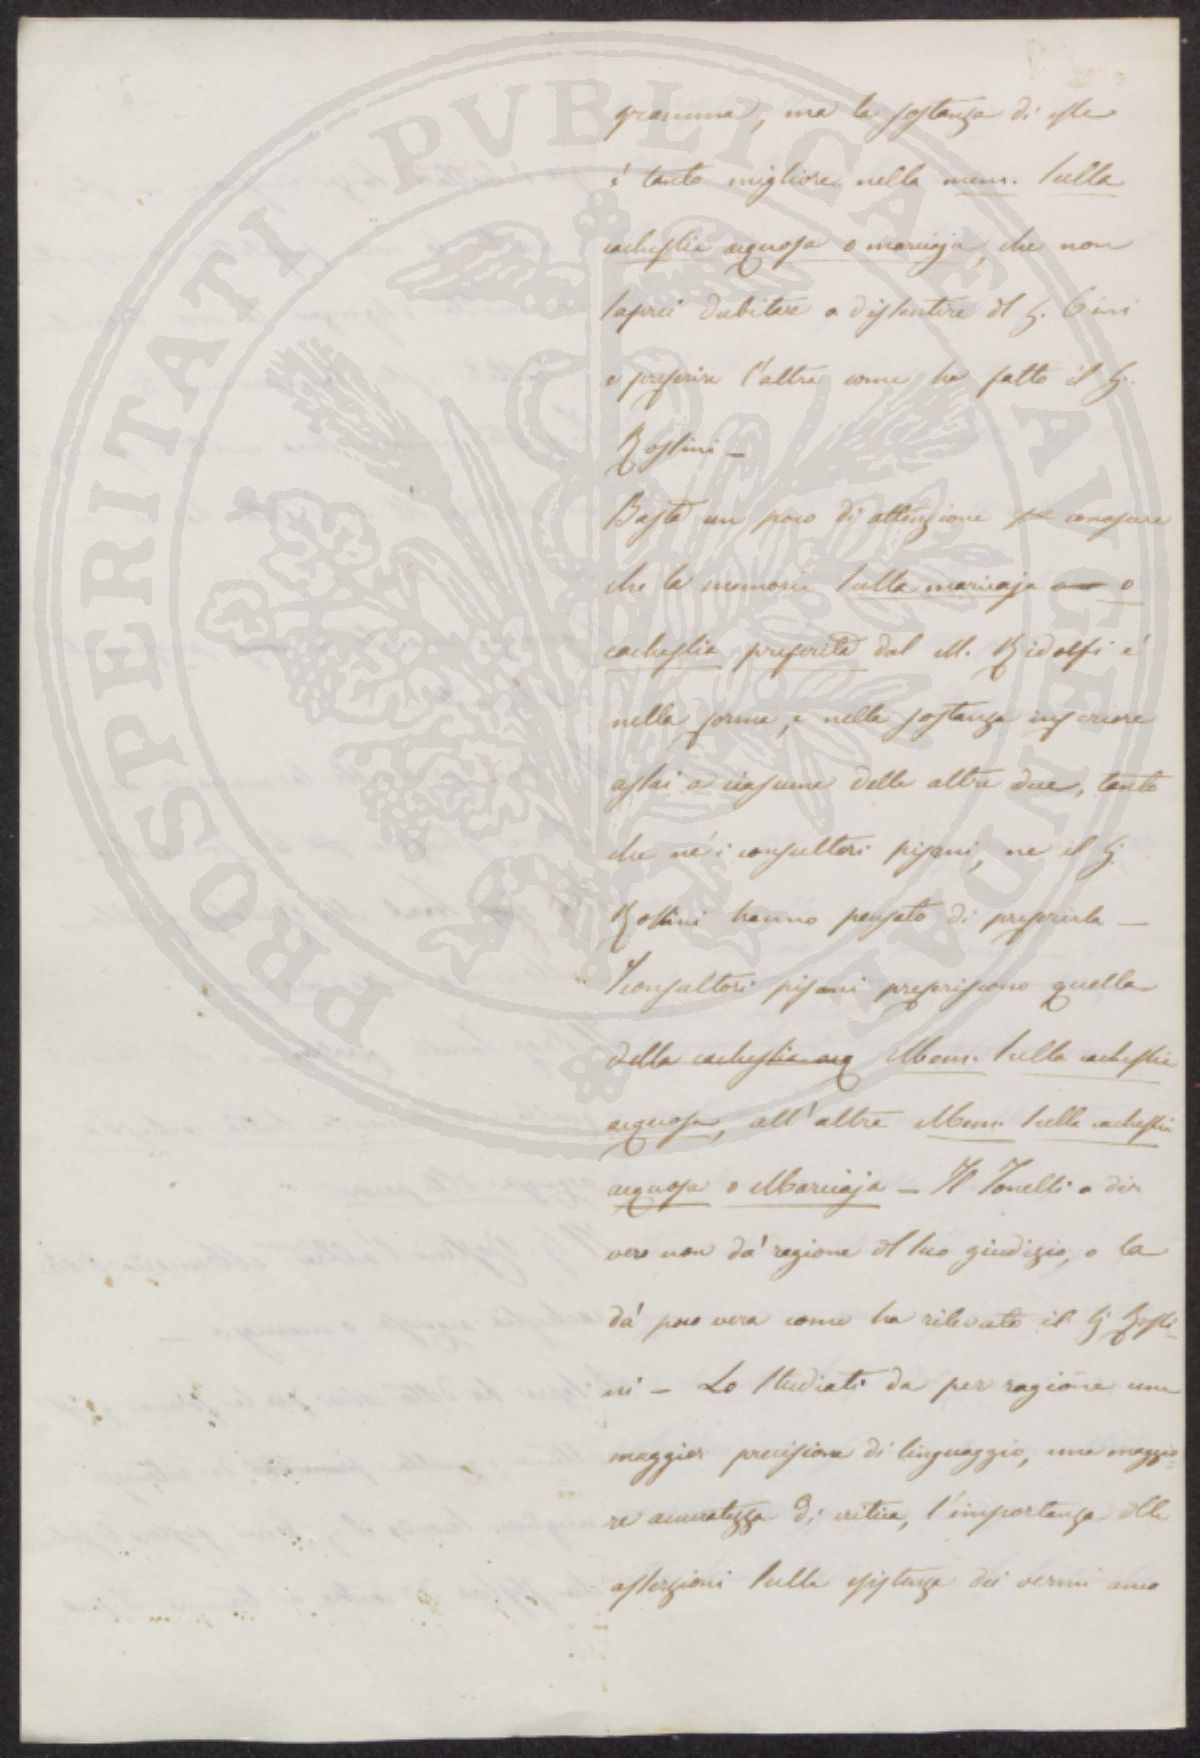 PROSPERITATI PVBLICAE AVGENDAE
gramma, ma la sostanza di esse
é tanto migliore nella mem. sulla
cachessia acquosa o marciaja, che non
saprei dubitare a dissentire dal S. Gini
e preferire l'altra come ha fatto il S.
Rossini —
Basta un poco di attenzione per conoscere
che la memoria sulla marciaja o
cachessia preferita dal M. Ridolfi é
nella forma, e nella sostanza inferiore
assai a ciascuna delle altre due, tanto
che né i consultori pisani, ne il S.
Rossini hanno pensato di preferirla —
I consultori pisani preferiscono quella
della cachessia acq Mem. sulla cachessia
acquosa, all'altra Mem. sulla cachessia
acquosa o Marciaja — Il Tonelli a dir
vero non dá ragione del suo giudizio, o la
dá poco vera come ha rilevato il S. Rossi-
ni — Lo Studiati da per ragione una
maggior precisione di linguaggio, una maggio-
re accuratezza di critica, l'importanza delle
asserzioni sulla esistenza dei vermi anco